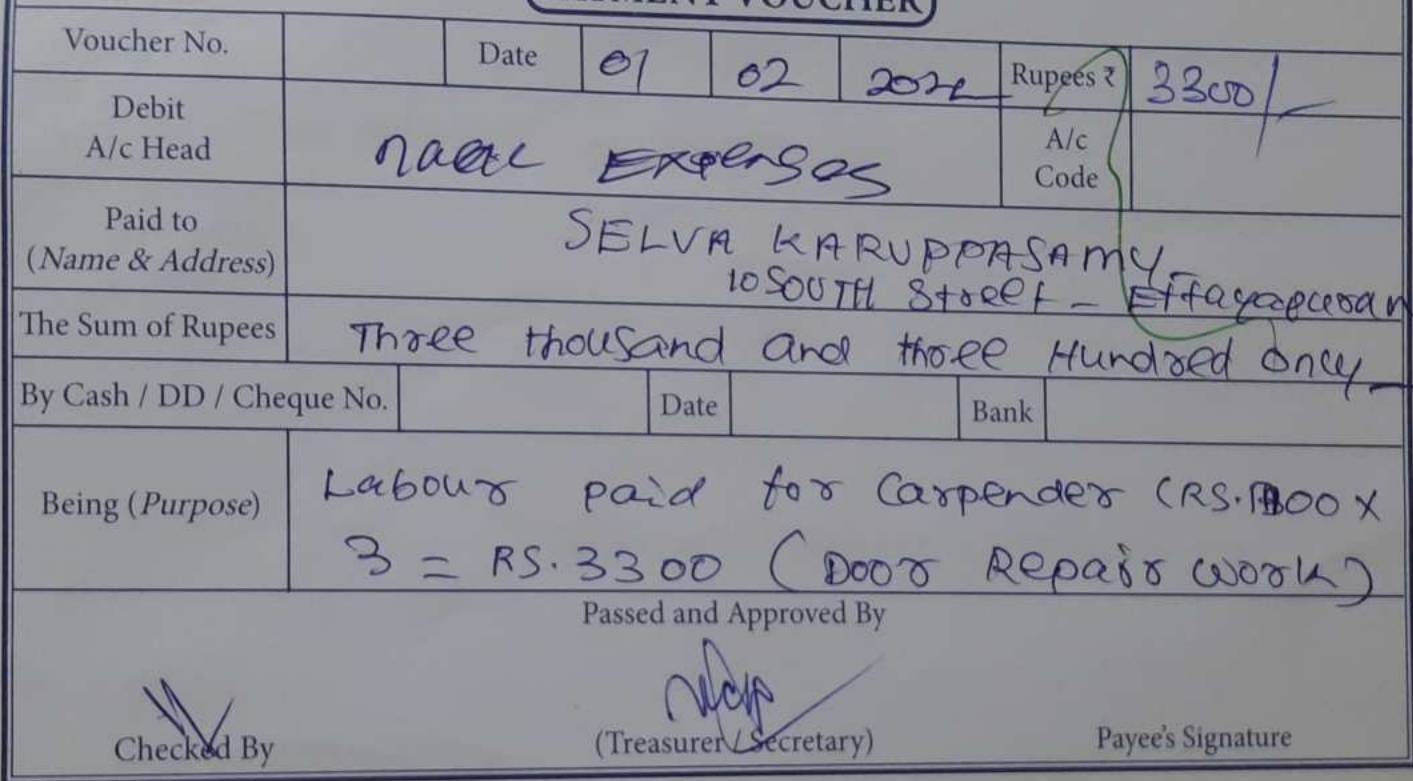 PAYMENT VOUCHER
Voucher No. Date 01 02 Rupees ₹ 3300/-
Debit
A/c Head naac Expenses A/c
Code
Paid to
(Name & Address) SELVA KARUPPASAMY
10 SOUTH Street - Ettayapuram
The Sum of Rupees Three thousand and three Hundred only
By Cash / DD / Cheque No. Date Bank
Being (Purpose) Labour paid for Carpender (RS.1100 X
3 = RS.3300 (Door Repair work)
Passed and Approved By
Checked By (Treasurer / Secretary) Payee's Signature